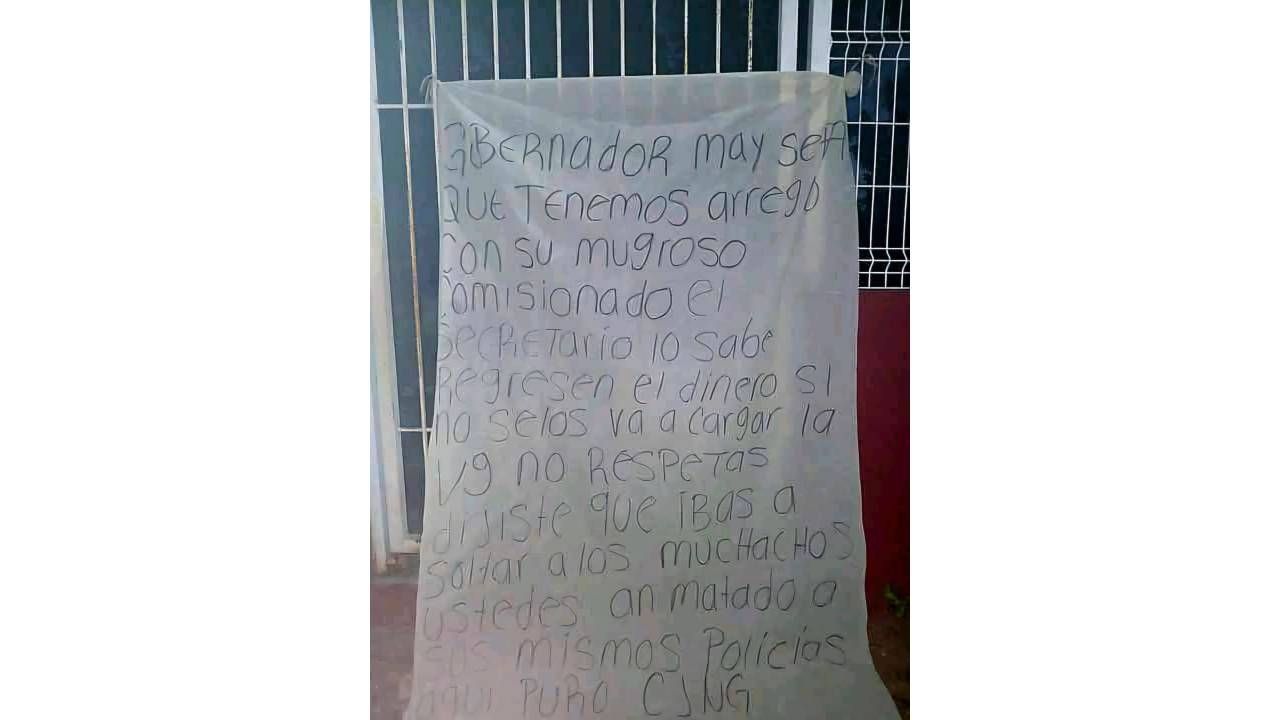 GOBERNADOR may seTA
QUE TENEMOS arreglo
Con su mugroso
Comisionado el
SeCRETario lo sabe
Regresen el dinero SI
no selos va a cargar la
Vg no RESPETAS
dijiste que IBAS a
soltar a los MUCHACHOS
ustedes an matado a
sus mismos Policias
aqui PURO CJNG